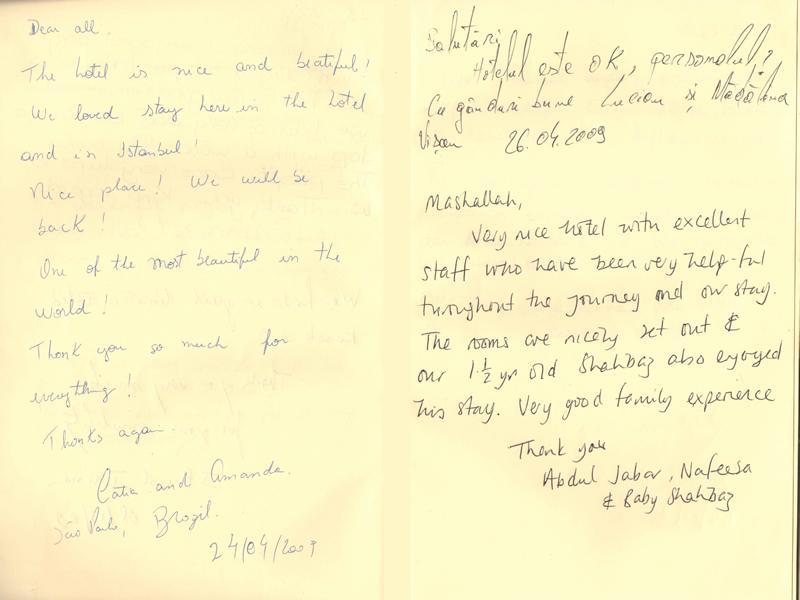 Dear all,
The hotel is nice and beatiful!
We loved stay here in the hotel
and in Istanbul!
Nice place! We will be
back!
One of the most beautiful in the
world!
Thank you so much for
everything!
Thanks again
Cátia and Amanda.
São Paulo, Brazil.
24/04/2009
Salutări
Hotelul este OK, personalul,?
Cu gânduri bune Lucian și Mădălina
26.04.2009
Mashallah,
Very nice hotel with excellent
staff who have been very help-ful
throughout the journey and our stay.
The rooms are nicely set out &
our 1.1/2 yr old Shahbaz also enjoyed
his stay. Very good family experience
Thank you
Abdul Jabar, Nafeesa
& Baby Shahbaz